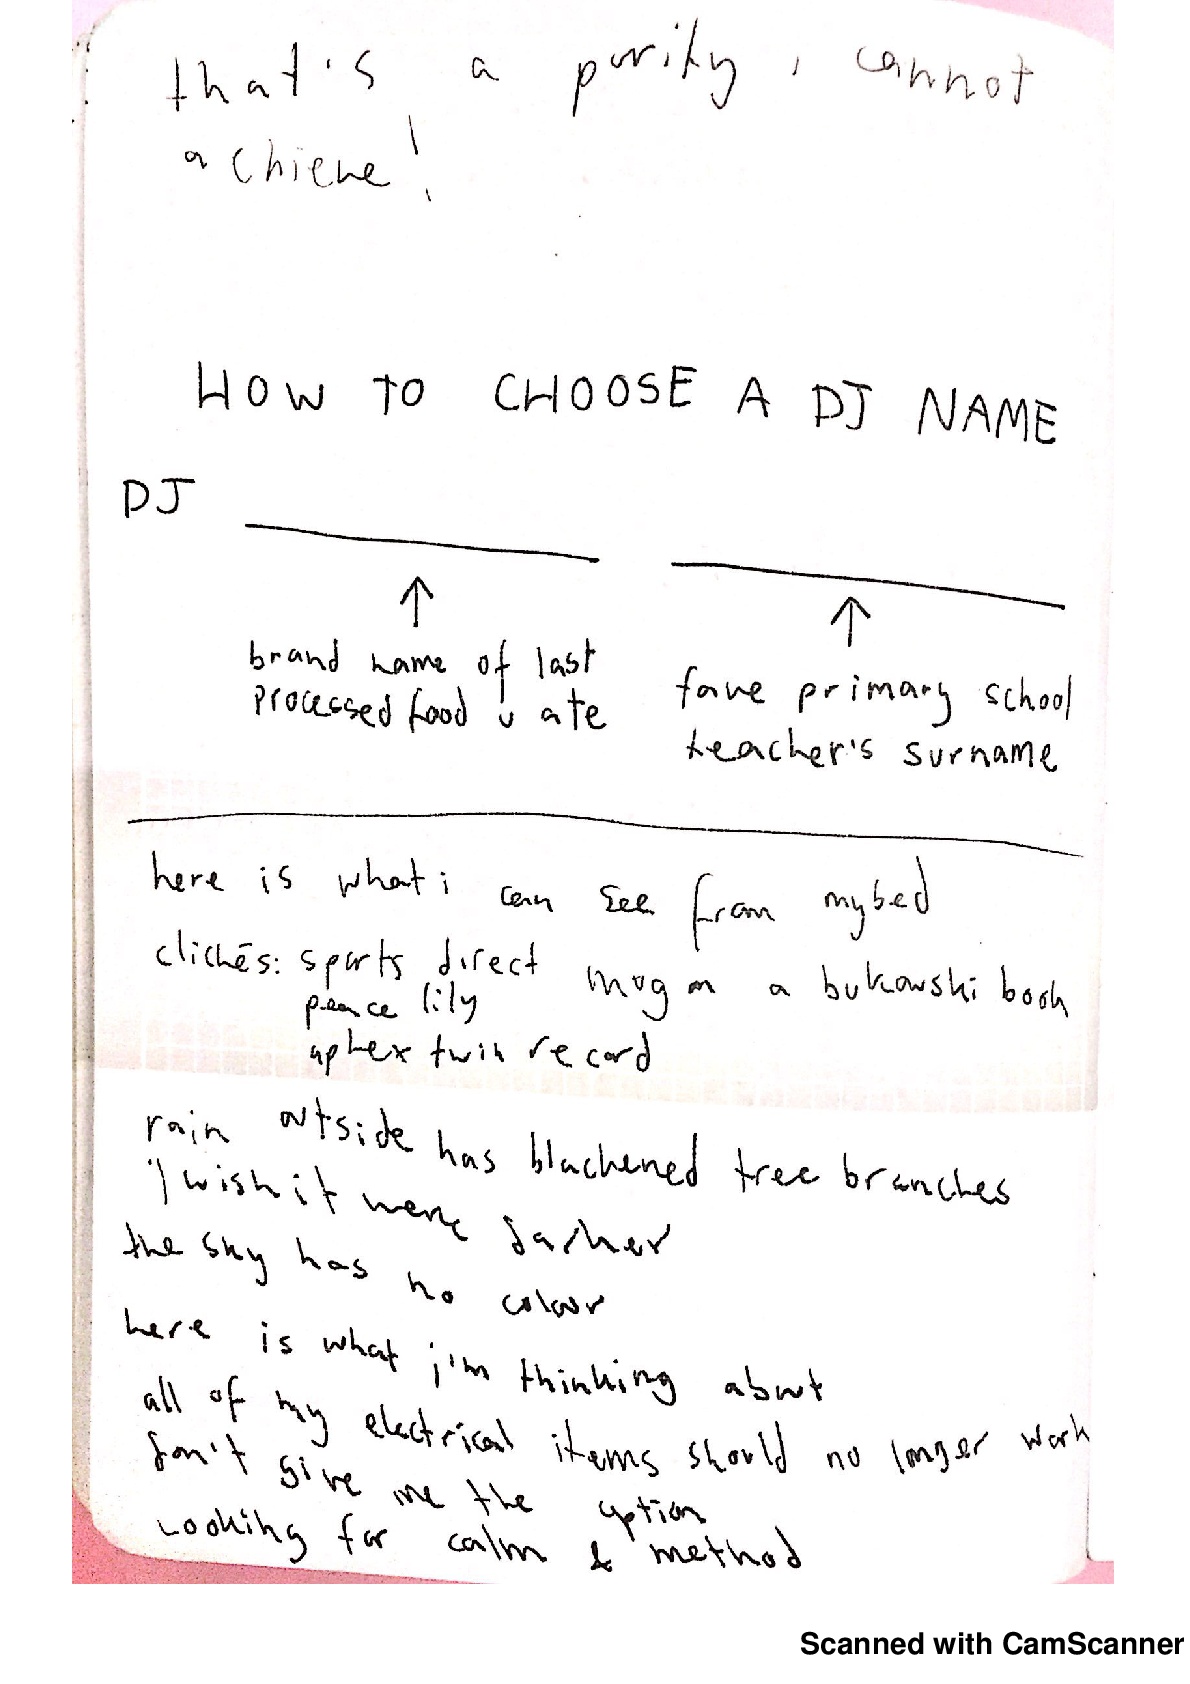 that's a purity i cannot
achieve!
HOW TO CHOOSE A DJ NAME
DJ
brand name of last
processed food u ate
fave primary school
teacher's surname
here is what i can see from my bed
clichés: sports direct mug on a bukowski book
peace lily
aphex twin record
rain outside has blackened tree branches
I wish it were darker
the sky has no colour
here is what i'm thinking about
all of my electrical items should no longer work
don't give me the option
Looking for calm & method
Scanned with CamScanner